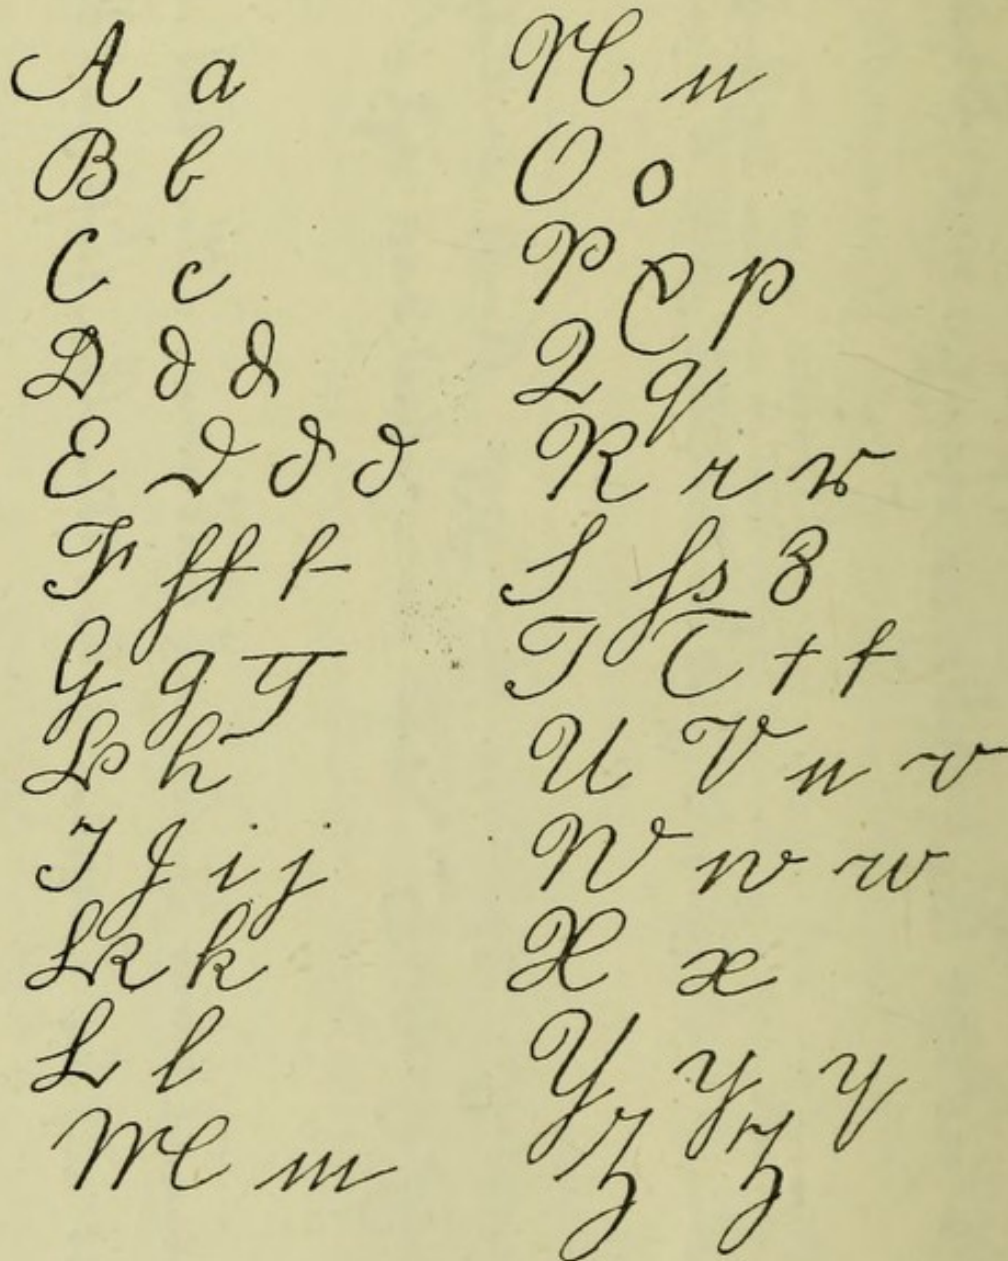 A a
B b
C c
D d d
E e e e
F f f f
G g g
H h
I J i j
K k
L l
M m
N n
O o
P P p
Q q
R r r
S ſs s
T T t t
U V u v
W w w
X x
Y y y
Z z